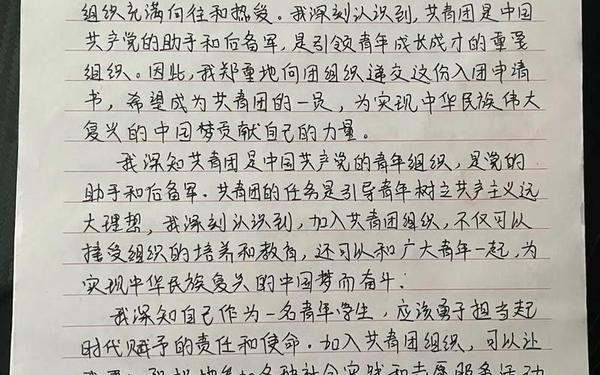 组织充满向往和热爱。我深刻认识到,共青团是中国
共产党的助手和后备军,是引领青年成长成才的重要
组织。因此,我郑重地向团组织递交这份入团申请
书,希望成为共青团的一员,为实现中华民族伟大
复兴的中国梦贡献自己的力量。
我深知共青团是中国共产党的青年组织,是党的
助手和后备军.共青团的任务是引导青年树立共产主义远
大理想,我深刻认识到,加入共青团组织,不仅可以
接受组织的培养和教育,还可以和广大青年一起,为
实现中华民族复兴的中国梦而奋斗;
我深知自己作为一名青年学生,应该勇于担当起
时代赋予的责任和使命.加入共青团组织,可以让
各种社会实践和志愿服务活动